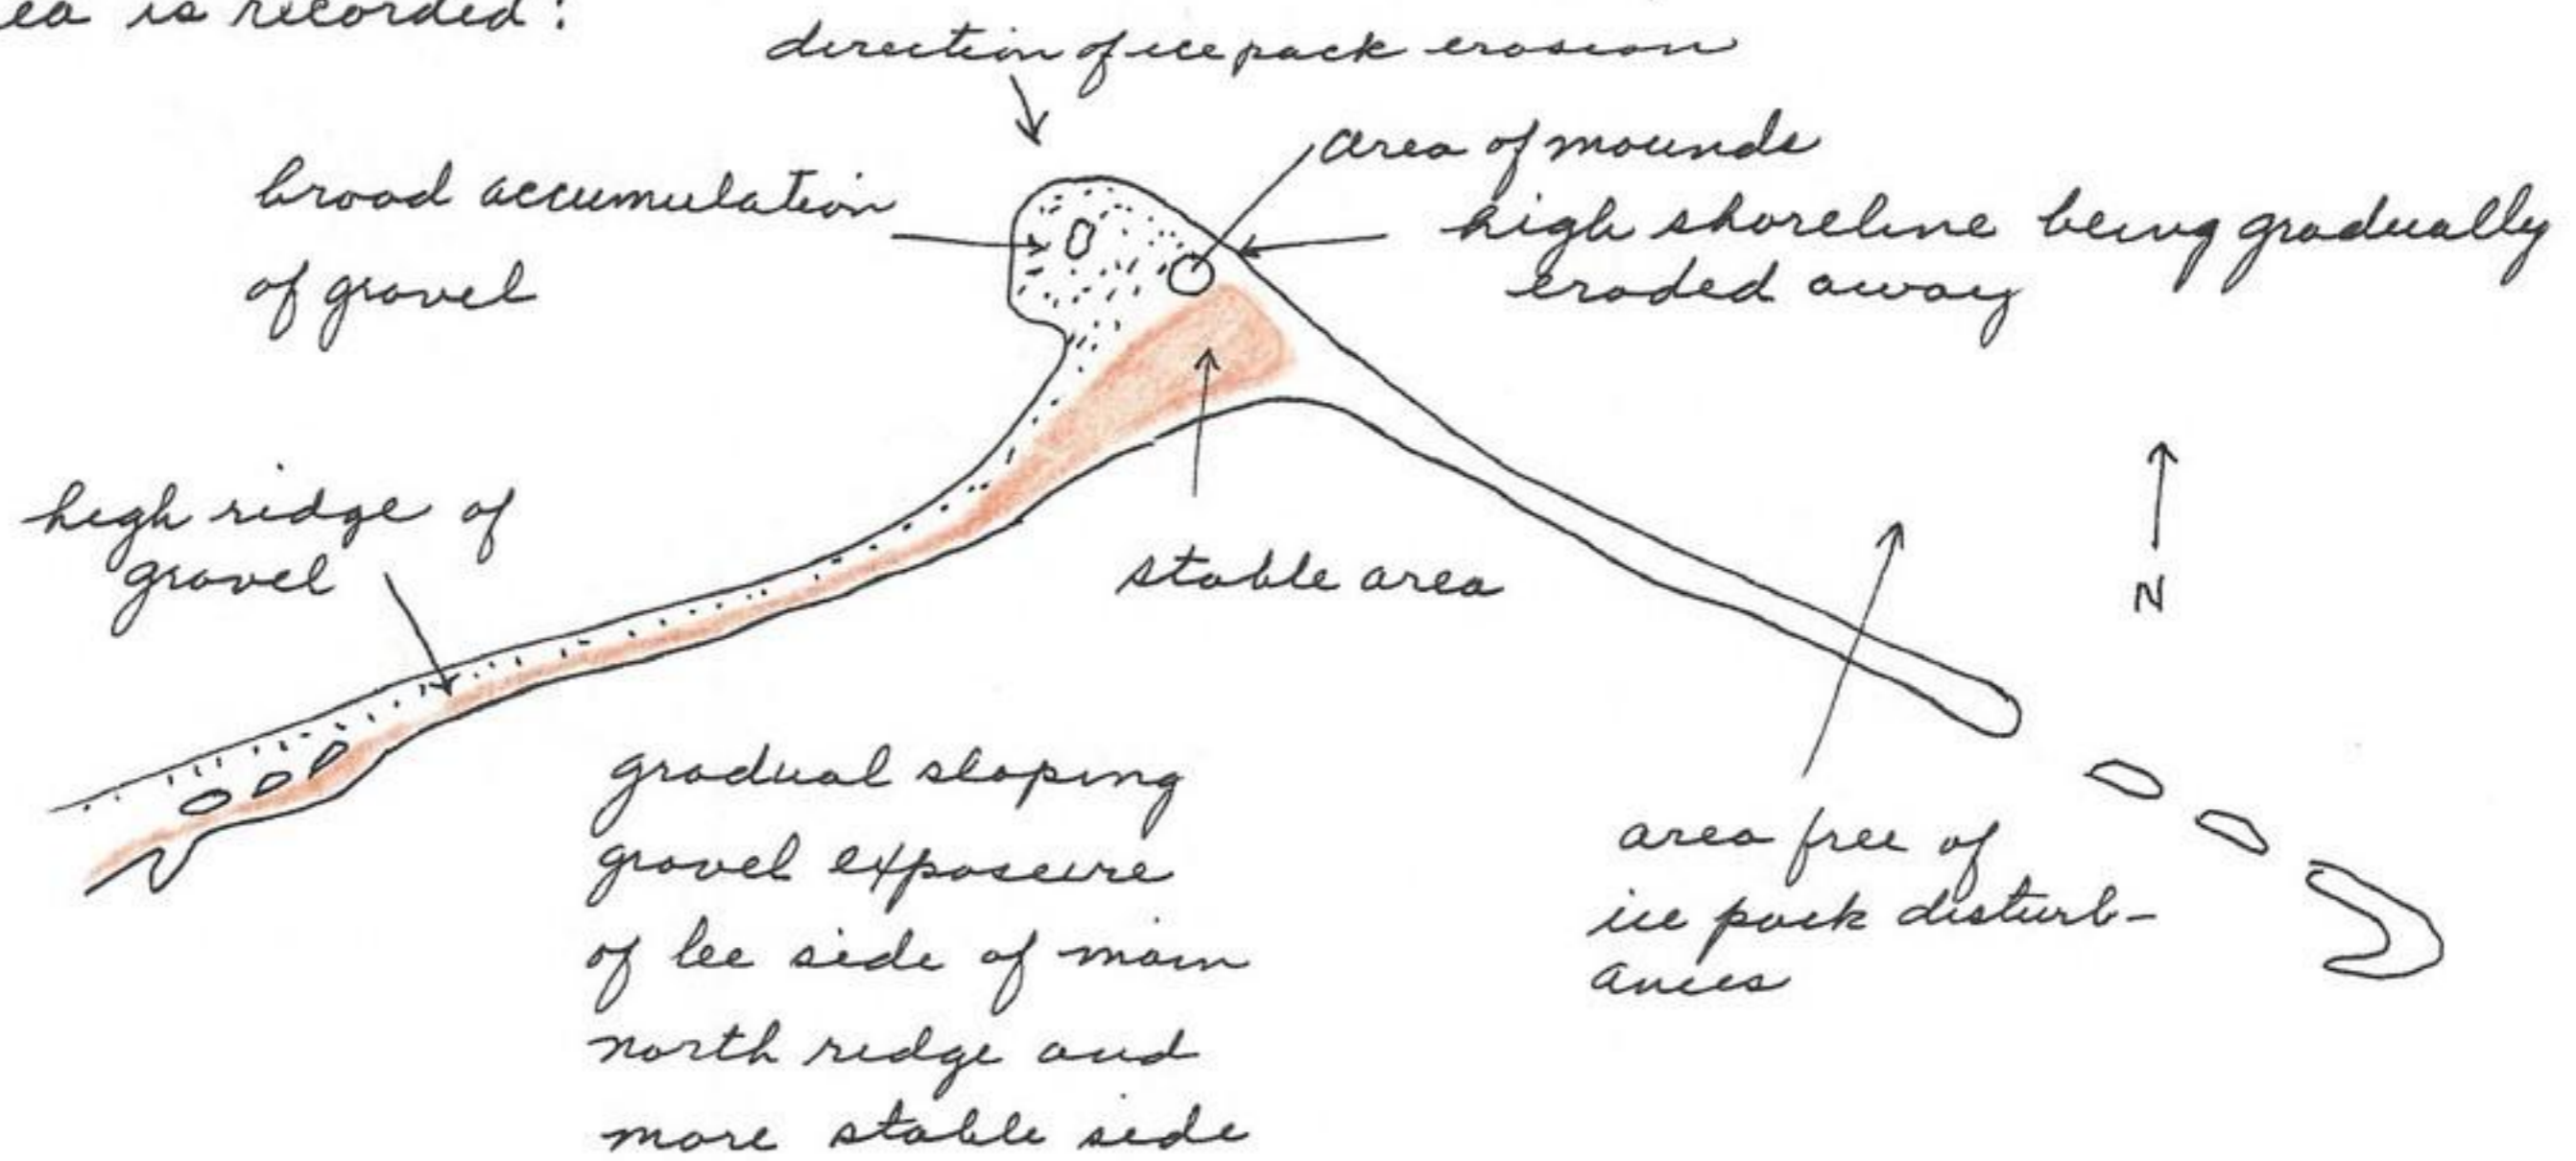 ea is recorded:
direction of ice pack erosion
area of mounds
broad accumulation
of gravel
high shoreline being gradually
eroded away
high ridge of
gravel
stable area
N
gradual sloping
gravel exposure
of lee side of main
north ridge and
more stable side
area free of
ice pack disturb-
ances